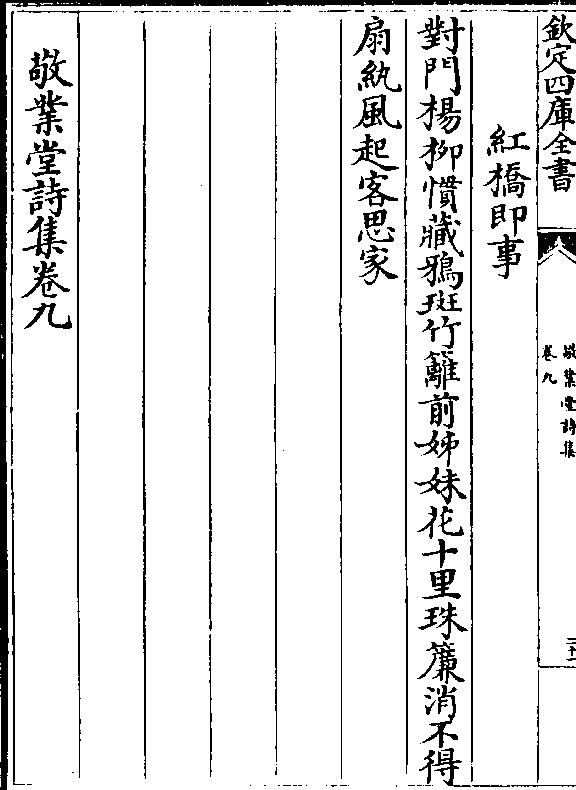 欽定四庫全書
敬業堂詩集
卷九
三十一
紅橋即事
對門楊栁慣藏鴉斑竹籬前姊妹花十里珠簾消不得
扇紈風起客思家
敬業堂詩集卷九